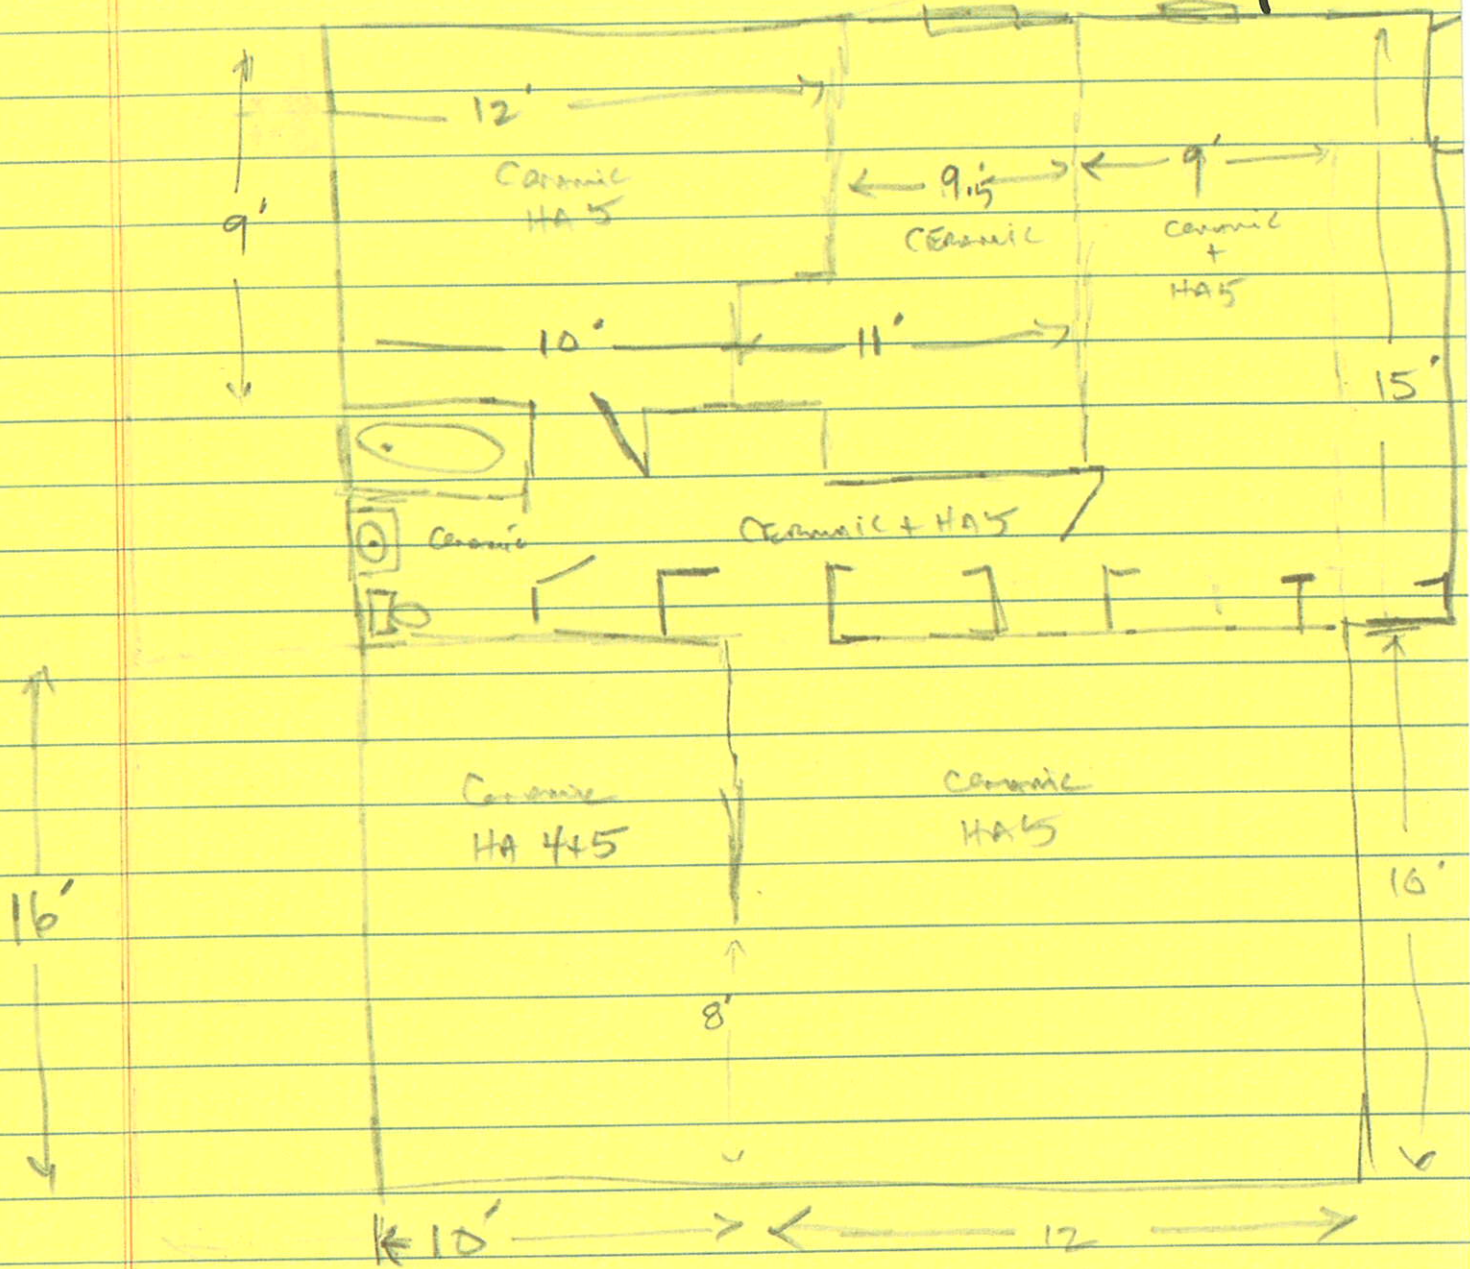 12'
Ceramic
HA 5
9'
9.5'
CERAMIC
9'
Ceramic
+
HA5
10'
11'
15'
Ceramic
CERMAIC + HA5
Ceramic
HA 4+5
Ceramic
HA5
16'
16'
8'
10'
12